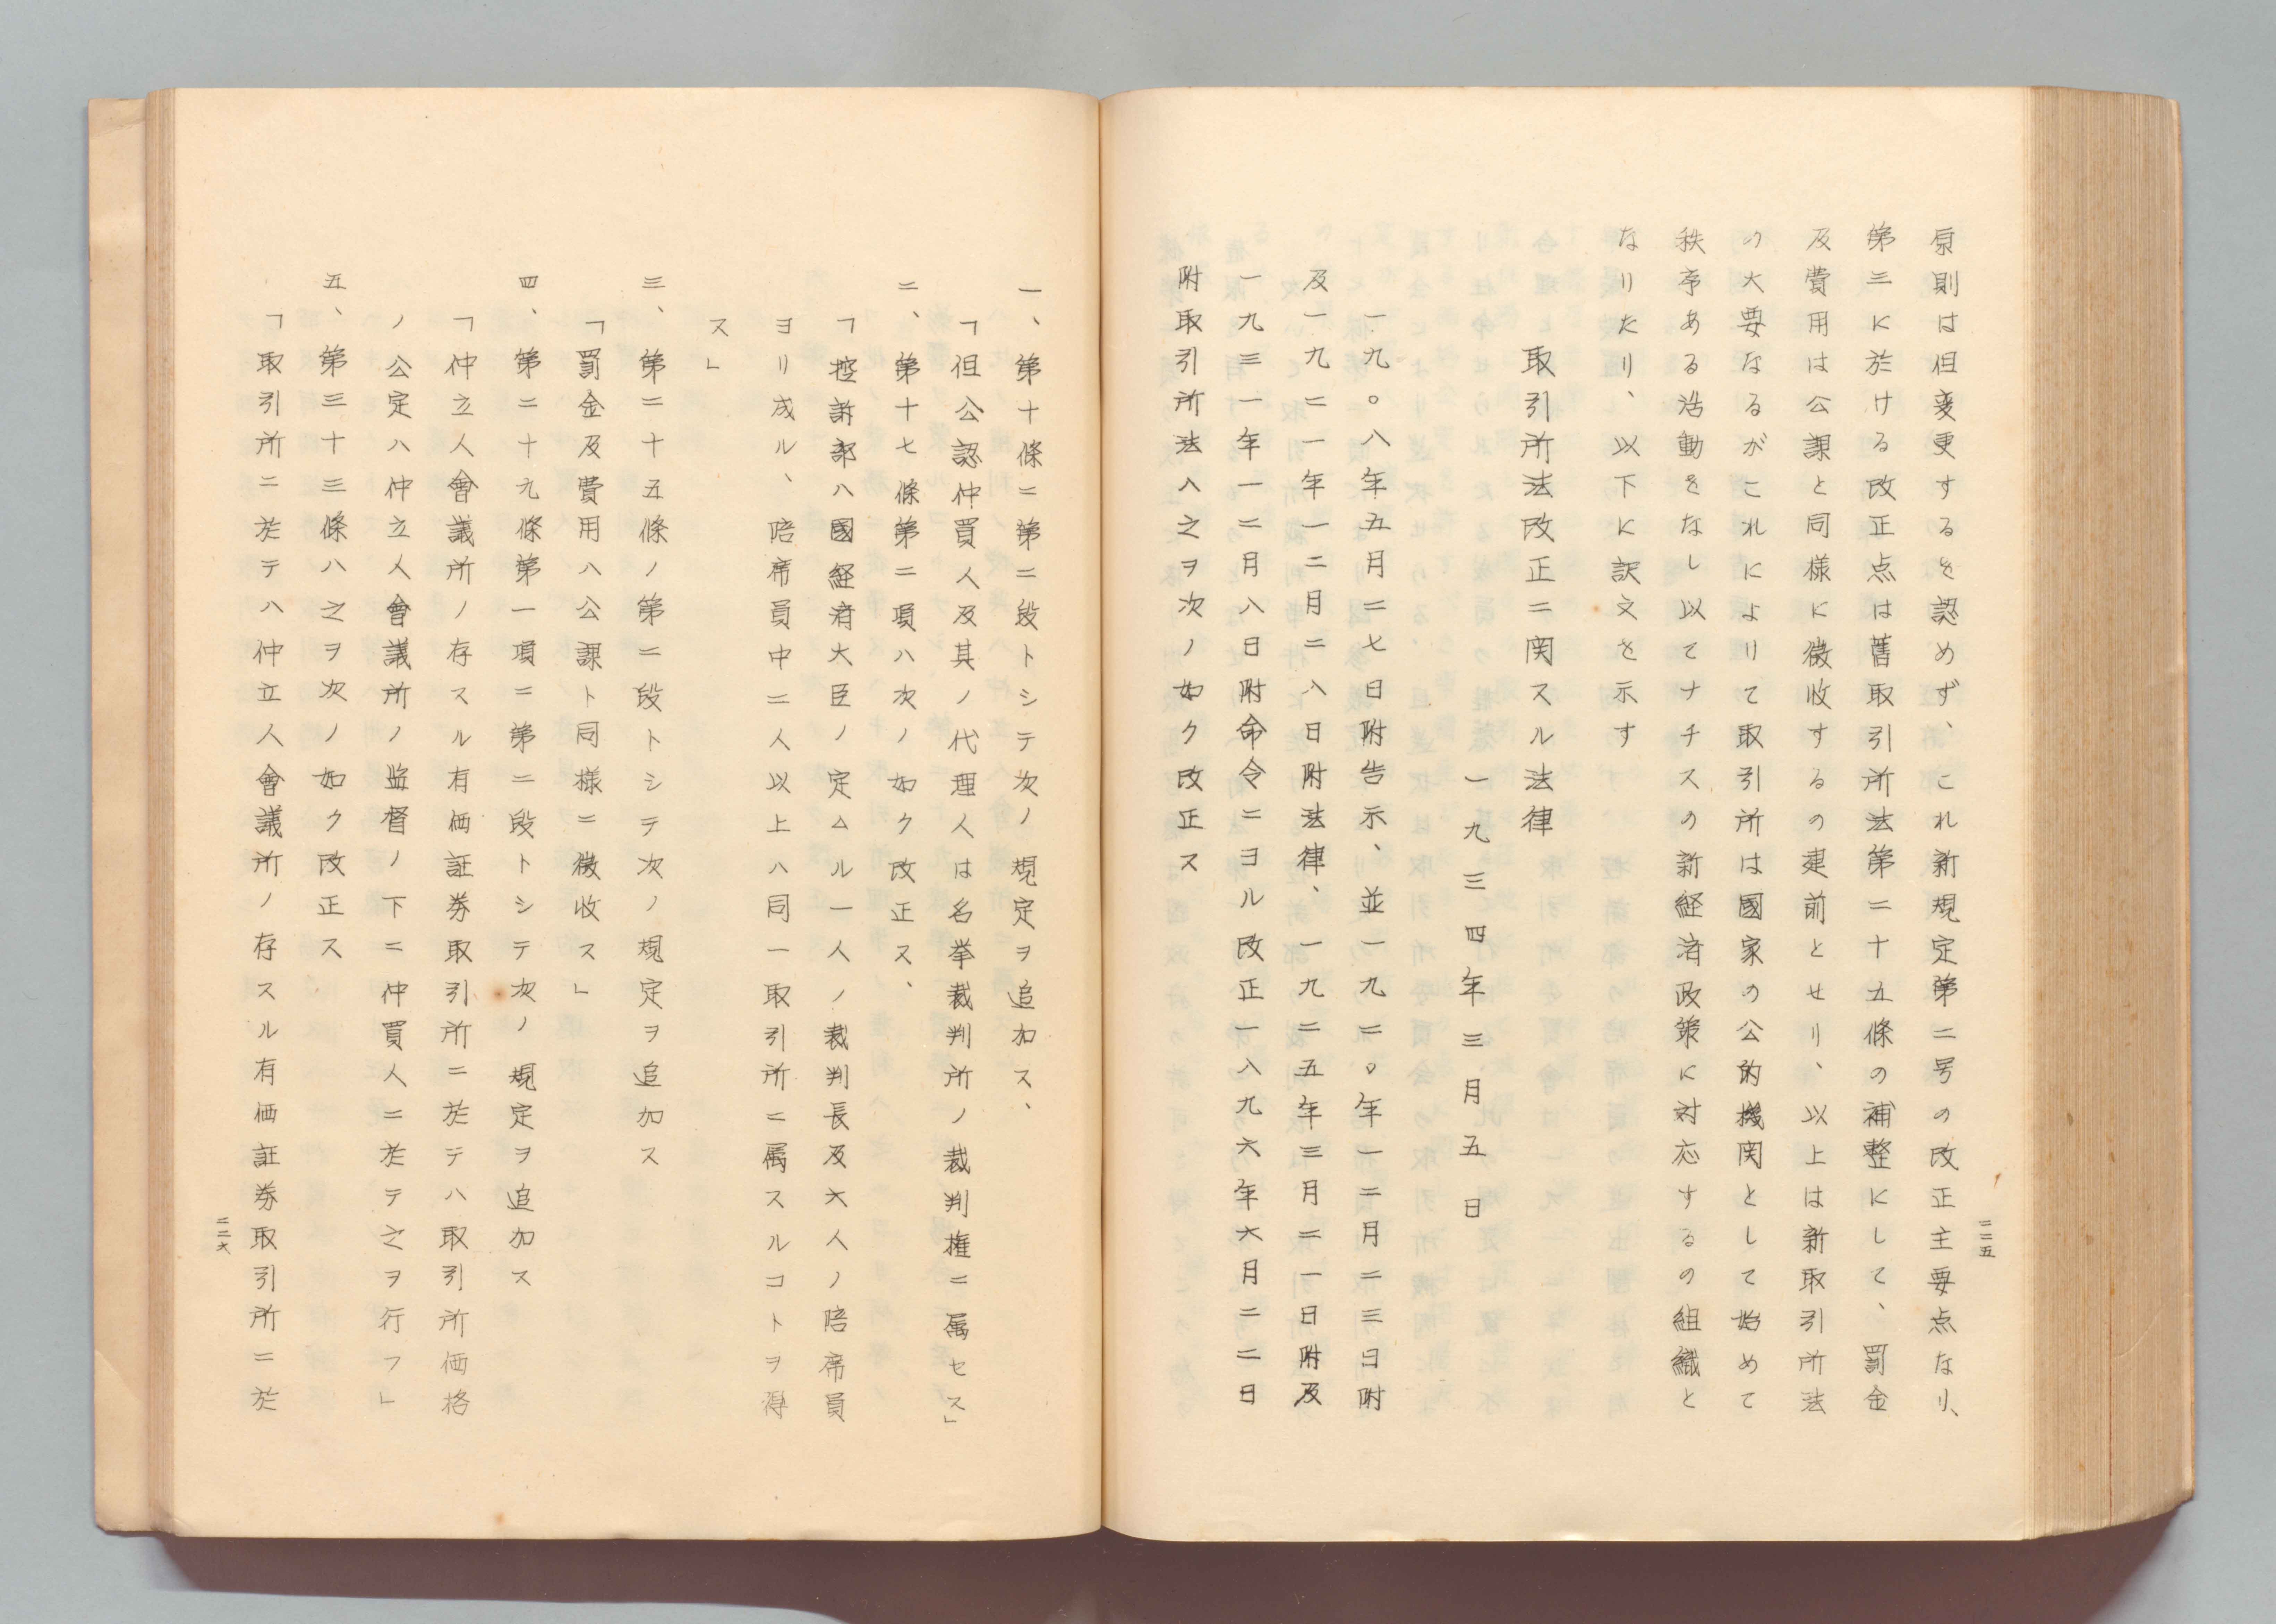 原則は但変更するを認めず、これ新規定第二号の改正主要点なり、
第三に於ける改正点は舊取引所法第二十五條の補整にして、罰金
及費用は公課と同様に徴收するの建前とせり、以上は新取引所法
の大要なるがこれによりて取引所は國家の公的機関として始めて
秩序ある活動をなし以てナチスの新経済政策に対応するの組織と
なりたり、以下に訳文を示す
取引所法改正ニ関スル法律
一九三四年三月五日
一九〇八年五月二七日附告示、並一九二〇年一二月二三日附
及一九二一年一二月二八日附法律、一九二五年三月二一日附及
一九三一年一二月八日附命令ニヨル改正一八九六年六月二二日
附取引所法ハ之ヲ次ノ如ク改正ス
二二五
一、第十條ニ第二段トシテ次ノ規定ヲ追加ス、
「但公認仲買人及其ノ代理人は名挙裁判所ノ裁判権ニ属セス」
二、第十七條第二項ハ次ノ如ク改正ス、
「控訴部ハ國経済大臣ノ定ムル一人ノ裁判長及六人ノ陪席員
ヨリ成ル、陪席員中二人以上ハ同一取引所ニ属スルコトヲ得
ス」
三、第二十五條ノ第二段トシテ次ノ規定ヲ追加ス
「罰金及費用ハ公課ト同様ニ徴收ス」
四、第二十九條第一項ニ第二段トシテ次ノ規定ヲ追加ス
「仲立人會議所ノ存スル有価証券取引所ニ於テハ取引所価格
ノ公定ハ仲立人會議所ノ監督ノ下ニ仲買人ニ於テ之ヲ行フ」
五、第三十三條ハ之ヲ次ノ如ク改正ス
「取引所ニ於テハ仲立人會議所ノ存スル有価証券取引所ニ於
二二六